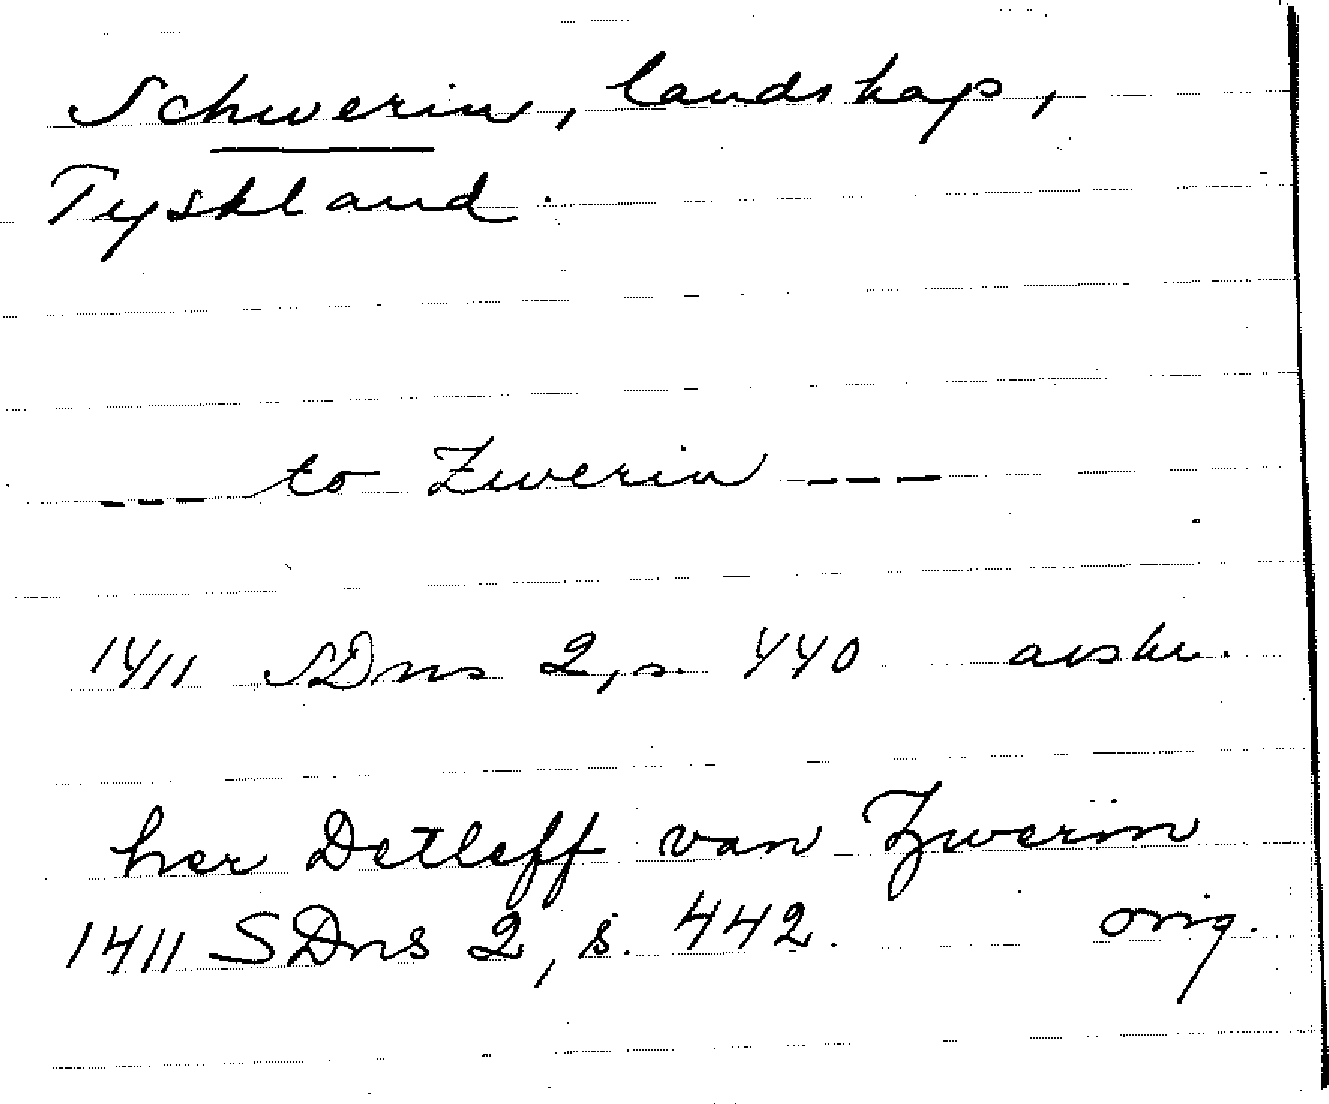 Schwerin, landskap,
Tyskland.
--- to Zwerin ---
1411 SDns 2, s. 440 avskr.
her Detleff van Zwerin
1411 SDns 2, s. 442. orig.